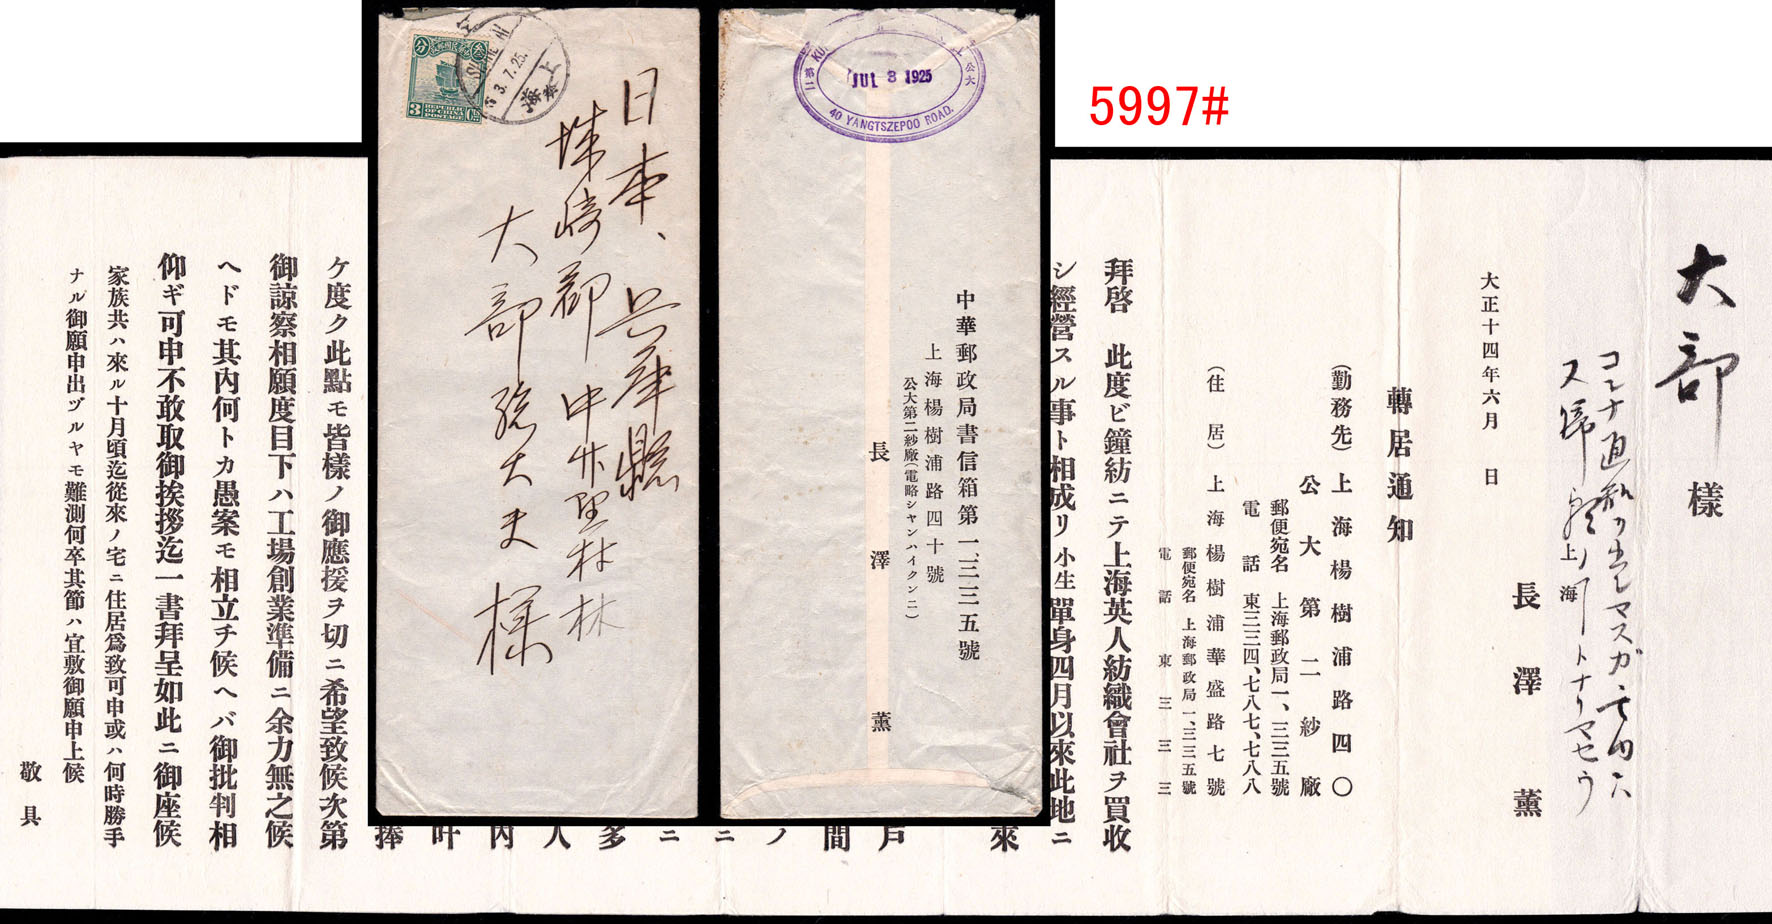 5997#
大部 様
コンナ通知ヲ出シマスガ、
長澤薫
上海
大正十四年六月 日
轉居通知
(勤務先)上海楊樹浦路四〇
公大第二紗廠
郵便宛名 上海郵政局一、三三五號
電話 東三三四、七八七、七八八
(住居)上海楊樹浦華盛路七號
郵便宛名 上海郵政局一、三三五號
電話東三三三
拜啓 此度ビ鐘紡ニテ上海英人紡織會社ヲ買收
シ經營スル事ト相成リ小生單身四月以來此地ニ
來
戶
間
ノ
ニ
ニ
多
人
內
叶
捧
ケ度ク此點モ皆樣ノ御應援ヲ切ニ希望致候次第
御諒察相願度目下ハ工場創業準備ニ余力無之候
ヘドモ其內何トカ愚案モ相立チ候ヘバ御批判相
仰ギ可申不敢取御挨拶迄一書拜呈如此ニ御座候
家族共ハ來ル十月頃迄從來ノ宅ニ住居爲致可申或ハ何時勝手
ナル御願申出ヅルヤモ難測何卒其節ハ宜敷御願申上候
敬具
分
叁
3
REPUBLIC
OF CHINA
POSTAGE
上海
3.7.25
日本、兵庫縣
郡
大部
様
第二
公大
JUL 3 1925
40 YANGTSZEPOO ROAD.
中華郵政局書信箱第一、三三五號
上海楊樹浦路四十號
公大第二紗廠(電略シャンハイクンニ)
長澤薫